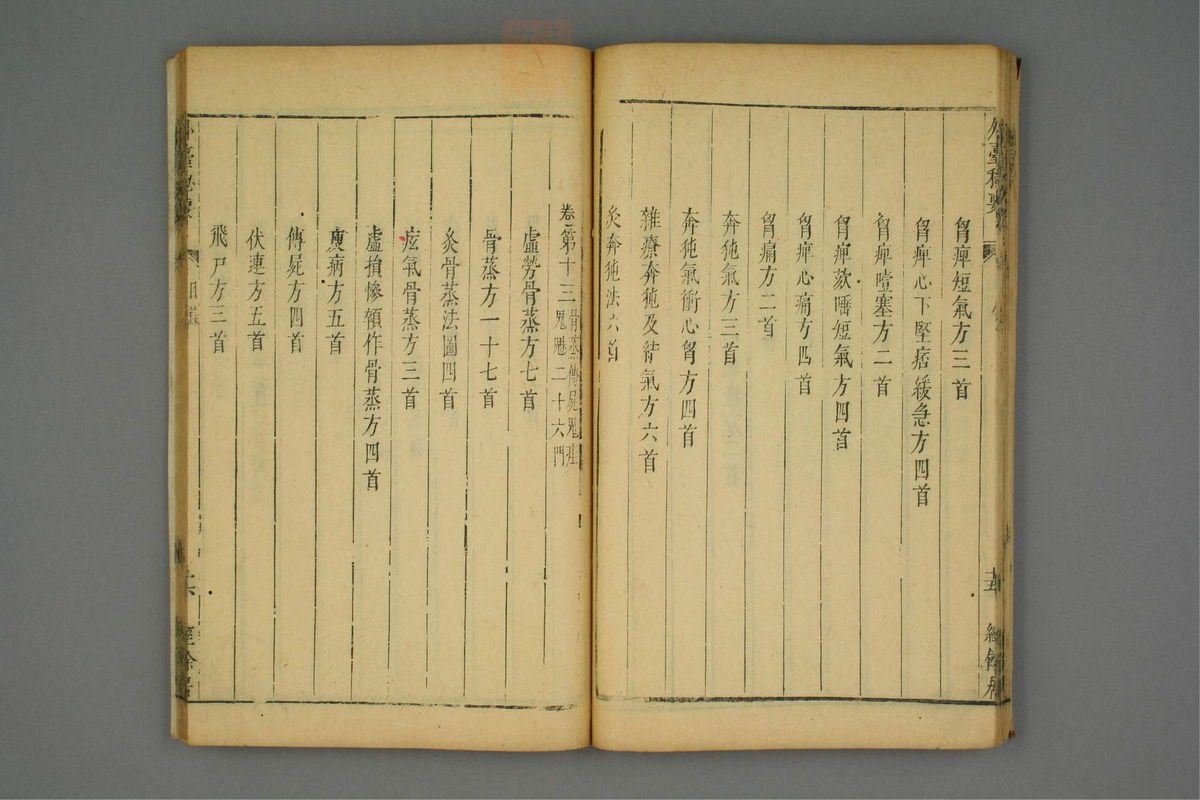 外臺秘要
十五
經餘居
胷痺短氣方三首
胷痺心下堅痞緩急方四首
胷痺噎塞方二首
胷痺欬唾短氣方四首
胷痺心痛方四首
胷痛方二首
奔㹠氣方三首
奔㹠氣衝心胷方四首
雜療奔㹠及結氣方六首
灸奔㹠法六首
卷第十三 骨蒸傳屍鬼疰鬼魅二十六門
虛勞骨蒸方七首
骨蒸方一十七首
灸骨蒸法圖四首
痃氣骨蒸方三首
虛損慘顇作骨蒸方四首
瘦病方五首
傳屍方四首
伏連方五首
飛尸方三首
外臺秘要
目錄
十六
經餘居